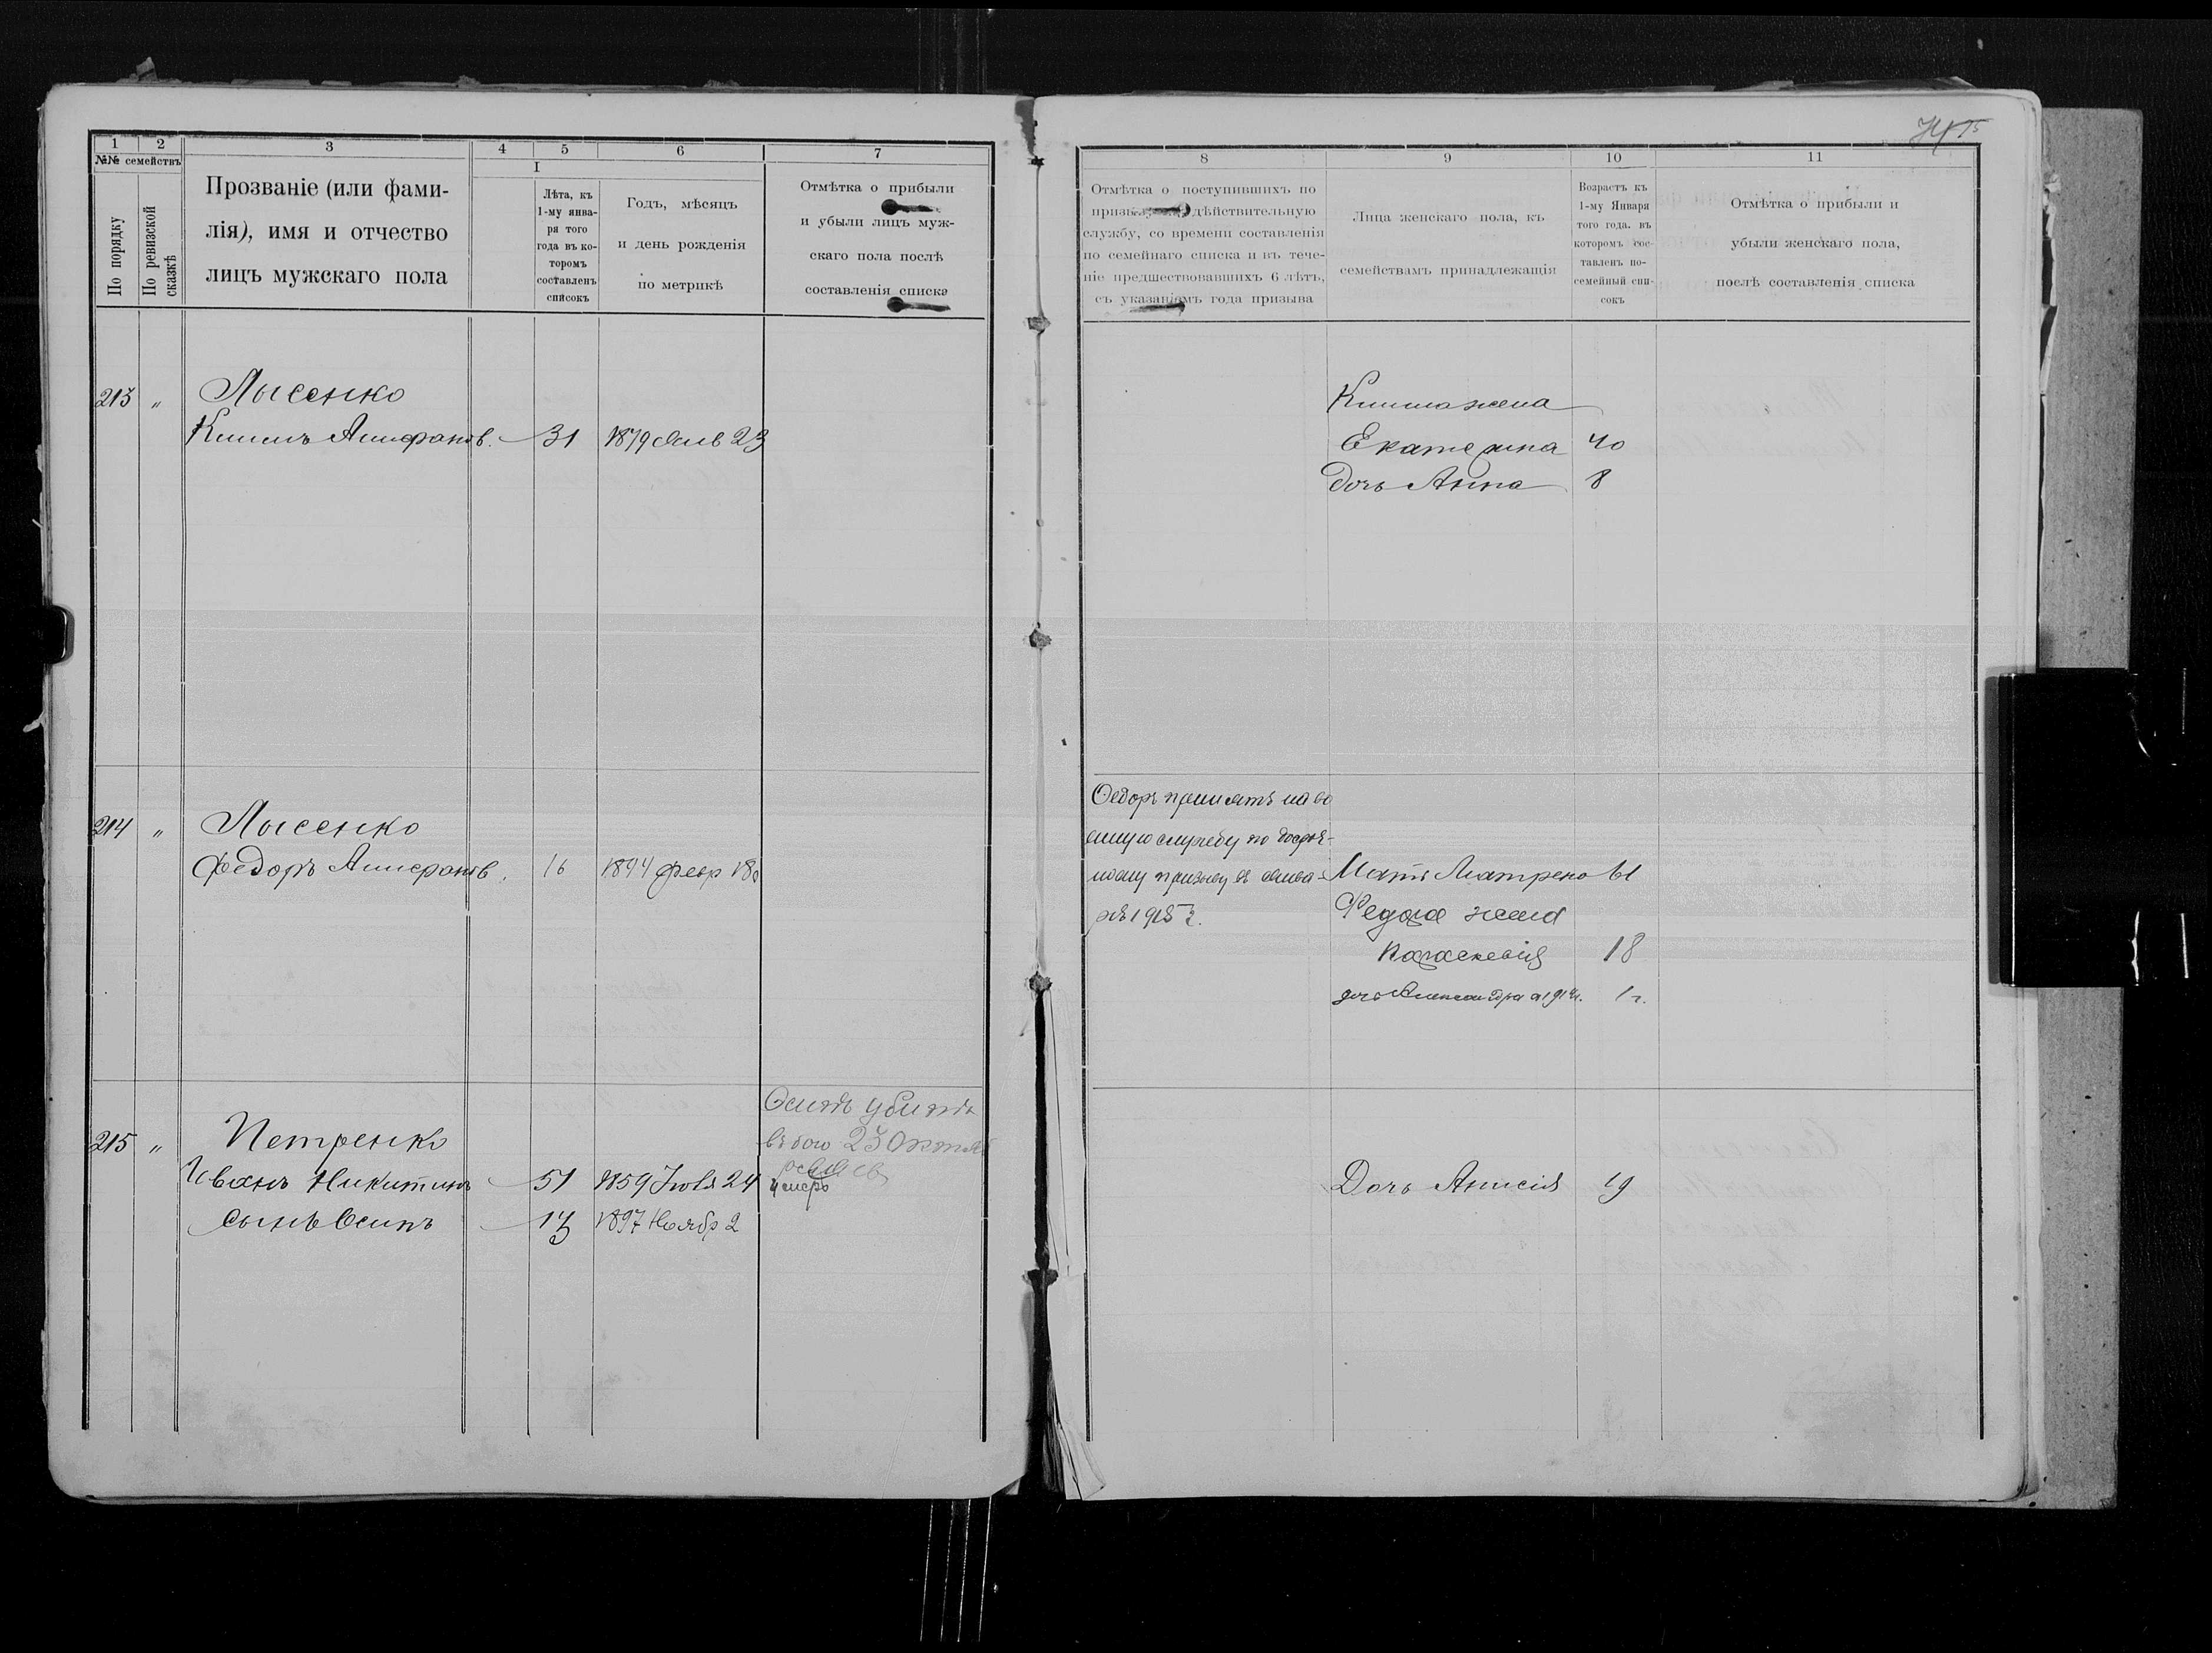 1 2 3 4 5 6 7
№№ семействъ
По порядку
По ревизской сказкѣ
Прозваніе (или фами-
лія), имя и отчество
лицъ мужскаго пола
I
Лѣта, къ
1-му янва-
ря того
года въ ко-
торомъ
составленъ
списокъ
Годъ, мѣсяцъ
и день рожденія
по метрикѣ
Отмѣтка о прибыли
и убыли лицъ муж-
скаго пола послѣ
составленія списка
213 " Лысенко
31 1879 23
214 " Лысенко
Федоръ 16 1894 февр 18
Осипъ убитъ
въ бою 23 Октяб
215 " Петренко
Иванъ Никитинъ 51 1859 24 умеръ
сынъ Осипъ 13 1897 Ноябр 2
74
8 9 10 11
Отмѣтка о поступившихъ по
призыву дѣйствительную
службу, со времени составленія
по семейнаго списка и въ тече-
ніе предшествовавшихъ 6 лѣтъ,
съ указаніемъ года призыва
Лица женскаго пола, къ
семействамъ принадлежащія
Возрастъ къ
1-му Января
того года. въ
которомъ сос-
тавленъ по-
семейный спи-
сокъ
Отмѣтка о прибыли и
убыли женскаго пола,
послѣ составленія списка
жена
Екатерина 40
дочь Анна 8
Ѳедоръ принятъ на во
енную службу по досроч-
ному призыву въ янва-
рѣ 1915 г.
Мать Матрена 61
Федора жена
Параскевія 18
дочь Александра 1 г.
Дочь Анисія 19